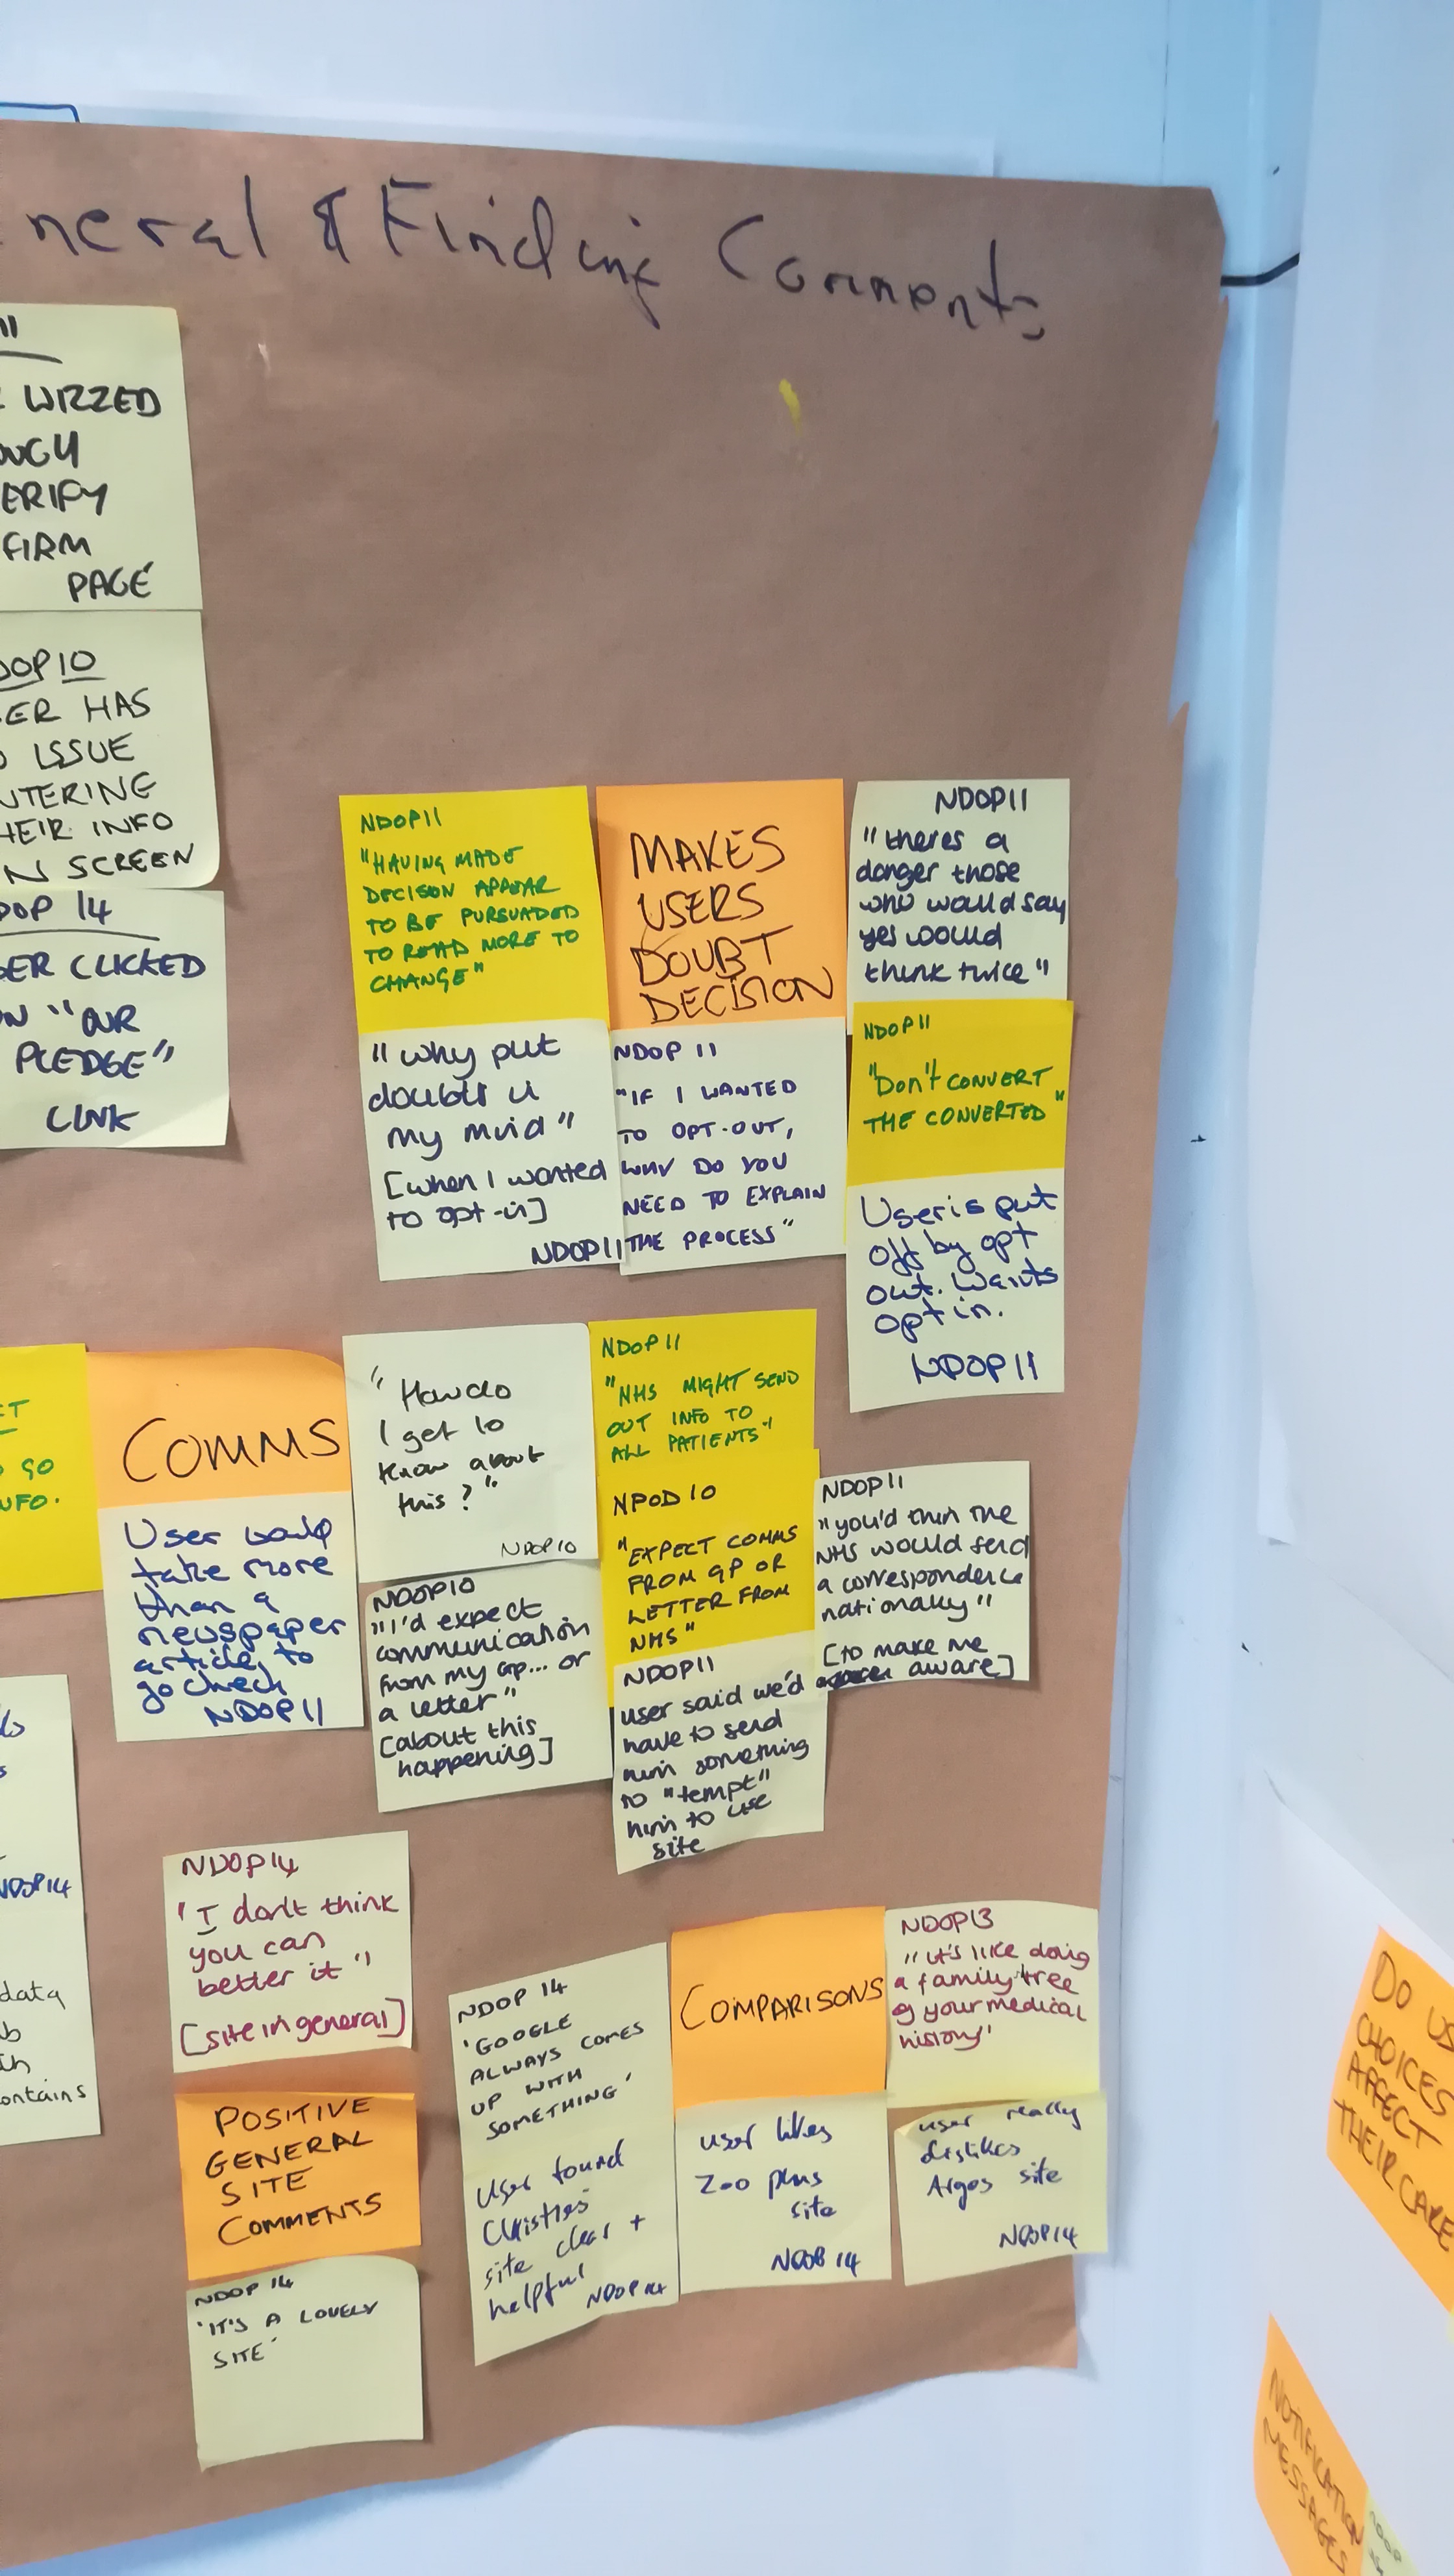 neral & Finding Comments
11
WIZZED
OUGH
ERIFY
FIRM
PAGE
DOP10
ER HAS
ISSUE
NTERING
HEIR INFO
N SCREEN
DOP 14
ER CLICKED
ON "OUR
PLEDGE"
LINK
NDOP11
"HAVING MADE
DECISION APPEAR
TO BE PURSUADED
TO READ MORE TO
CHANGE"
MAKES
USERS
DOUBT
DECISION
NDOP11
"theres a
danger those
who would say
yes would
think twice"
"why put
doubts in
my mind"
[when I wanted
to opt-in]
NDOP11
NDOP 11
"IF I WANTED
TO OPT-OUT,
WHY DO YOU
NEED TO EXPLAIN
THE PROCESS"
NDOP11
"Don't CONVERT
THE CONVERTED"
User is put
off by opt
out. Wants
opt in.
NDOP11
ET
GO
NFO.
COMMS
User would
take more
than a
newspaper
article, to
go check
NDOP11
"How do
I get to
know about
this?"
NDOP10
NDOP10
"I'd expect
communication
from my GP... or
a letter"
[about this
happening]
NDOP11
"NHS MIGHT SEND
OUT INFO TO
ALL PATIENTS"
NPOD10
"EXPECT COMMS
FROM GP OR
LETTER FROM
NHS"
NDOP11
user said we'd
have to send
him something
to "tempt"
him to use
site
NDOP11
"you'd thin the
NHS would send
a correspondence
nationally"
[to make me
aware]
NDOP14
data
ontains
NDOP14
"I don't think
you can
better it"
[site in general]
POSITIVE
GENERAL
SITE
COMMENTS
NDOP 14
'IT'S A LOVELY
SITE'
NDOP 14
'GOOGLE
ALWAYS COMES
UP WITH
SOMETHING'
User found
Christies
site clear +
helpful
NDOP14
COMPARISONS
NDOP13
"it's like doing
a family tree
of your medical
history"
user likes
Zoo plus
site
NDOP 14
user really
dislikes
Argos site
NDOP14
DO US
CHOICES
AFFECT
THEIR CARE
NOTIFICATION
MESSAGES